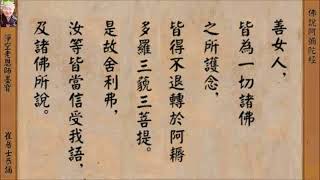 佛說阿彌陀經
善女人，
皆為一切諸佛
之所護念，
皆得不退轉於阿耨
多羅三藐三菩提。
是故舍利弗，
汝等皆當信受我語，
及諸佛所說。
淨空老恩師墨寶
崔居士恭誦